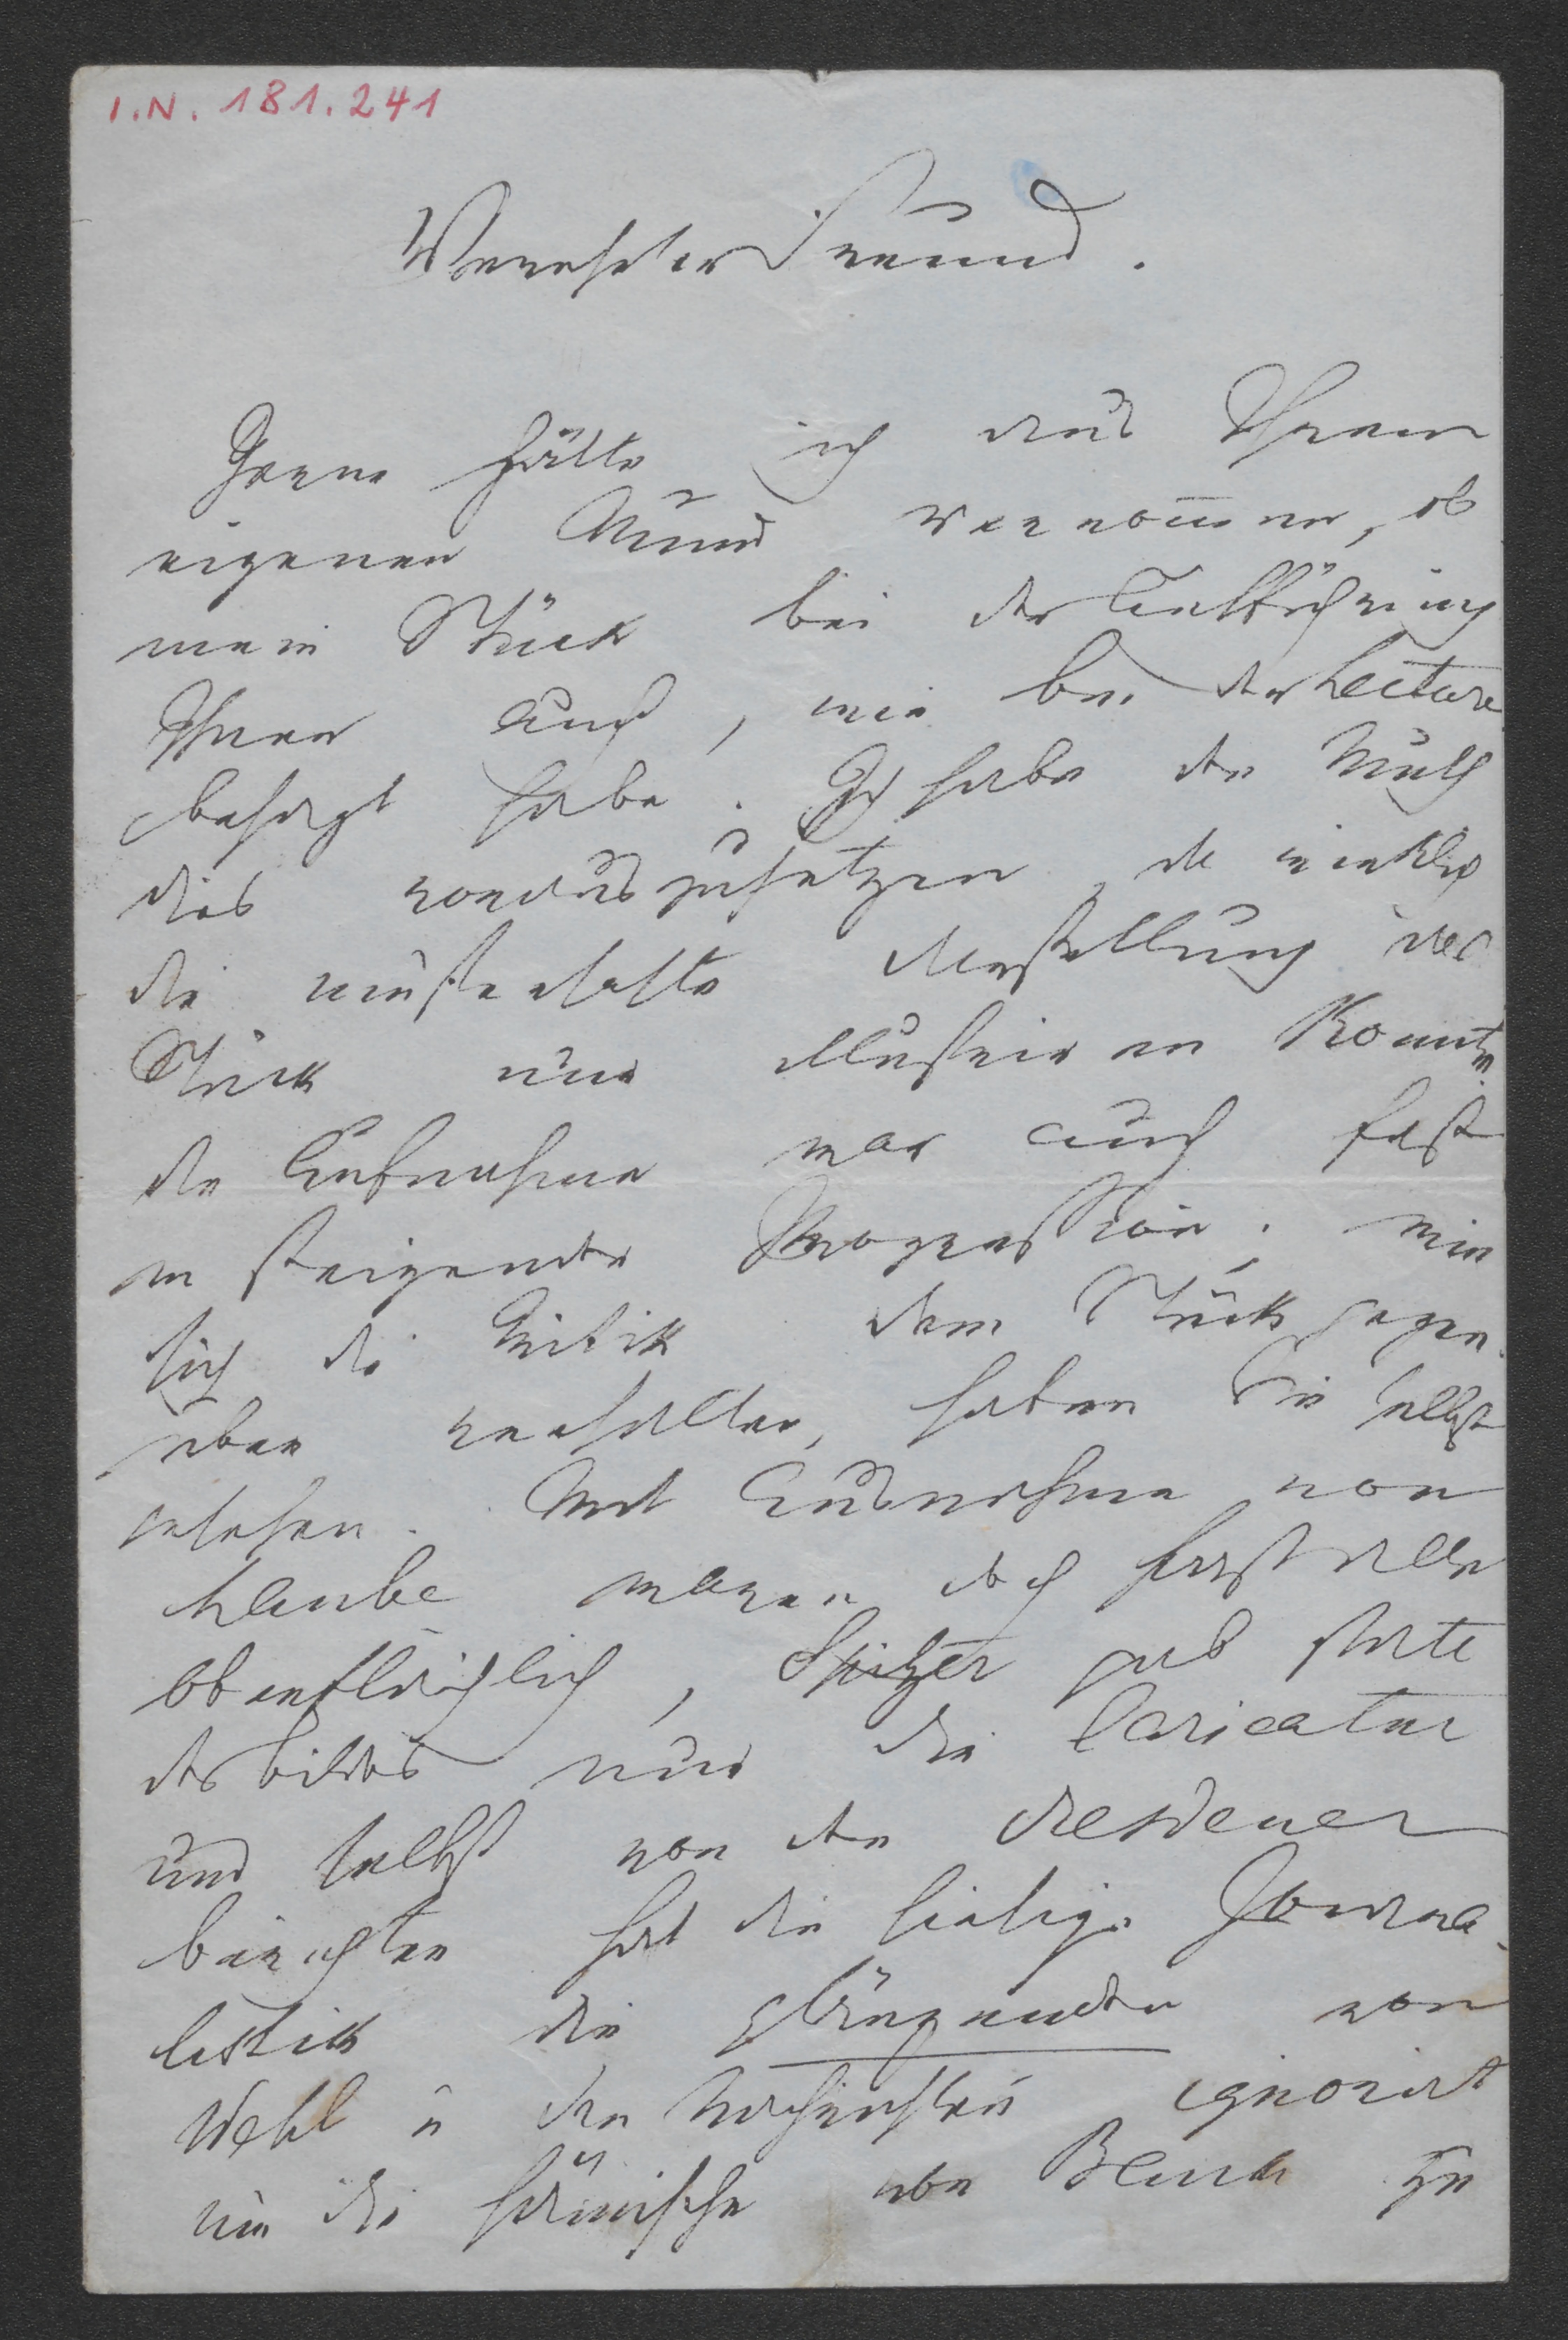 I.N. 181.241
Verehrter Freund.
Gerne hätte ich aus Ihrem
eigenen Mund vernom̄en, ob
mein Stück bei der Aufführung
Ihnen auch, wie bei der Lecture
behagt habe. Ich habe den Muth
dies vorauszusetzen, da wirklich
die musterhafte Darstellung das
Stück nur illustriren konnte.
die Aufnahme war auch fast
in steigender Progression. wie
sich die Kritik dem Stück gegen
über verhalten, haben Sie selbst
gesehen. Mit Ausnahme von
Laube waren doch fast alle
oberflächlich, Spitzer gab statt
des Bildes nur die Caricatur
und selbst von den Dresdener
berichten hat die hiesige Journa-
listik die glänzenden von
Wehl u den ignorirt
um die hämische von Banck zu